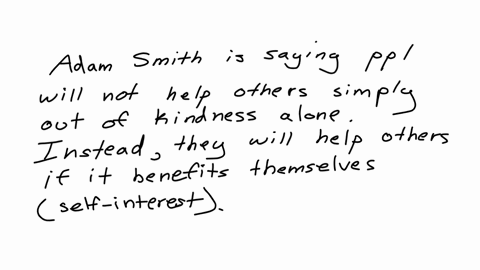 Adam Smith is saying ppl
will not help others simply
out of kindness alone.
Instead, they will help others
if it benefits themselves
(self-interest).